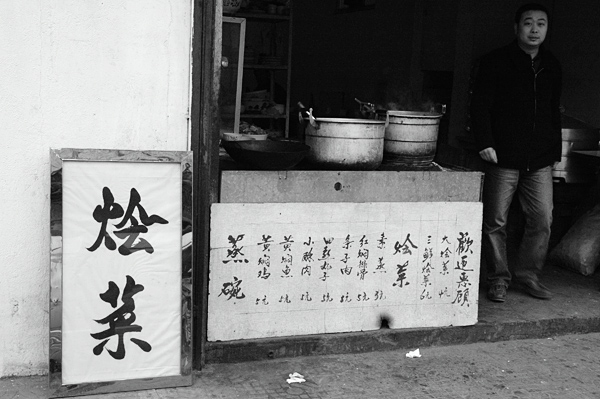 烩菜
歡迎惠顧
大烩菜
三鲜烩菜 6元
烩菜
素蒸 3元
红焖排骨 5元
条子肉 5元
四喜丸子 5元
小酥肉 5元
黄焖鱼 5元
黄焖鸡 5元
蒸碗